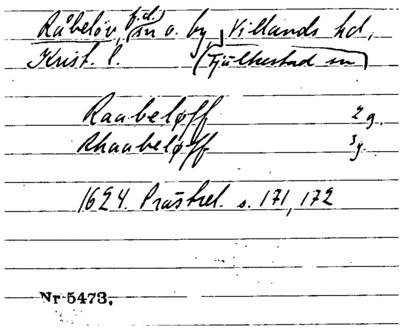 Råbelöv, f.d. sn o. by, Villands hd,
Krist. l. (Fjälkestad sn
Raabeløff 2 g.
Rhaabeløff 3 g.
1624. Prästrel. s. 171, 172
Nr 5473.